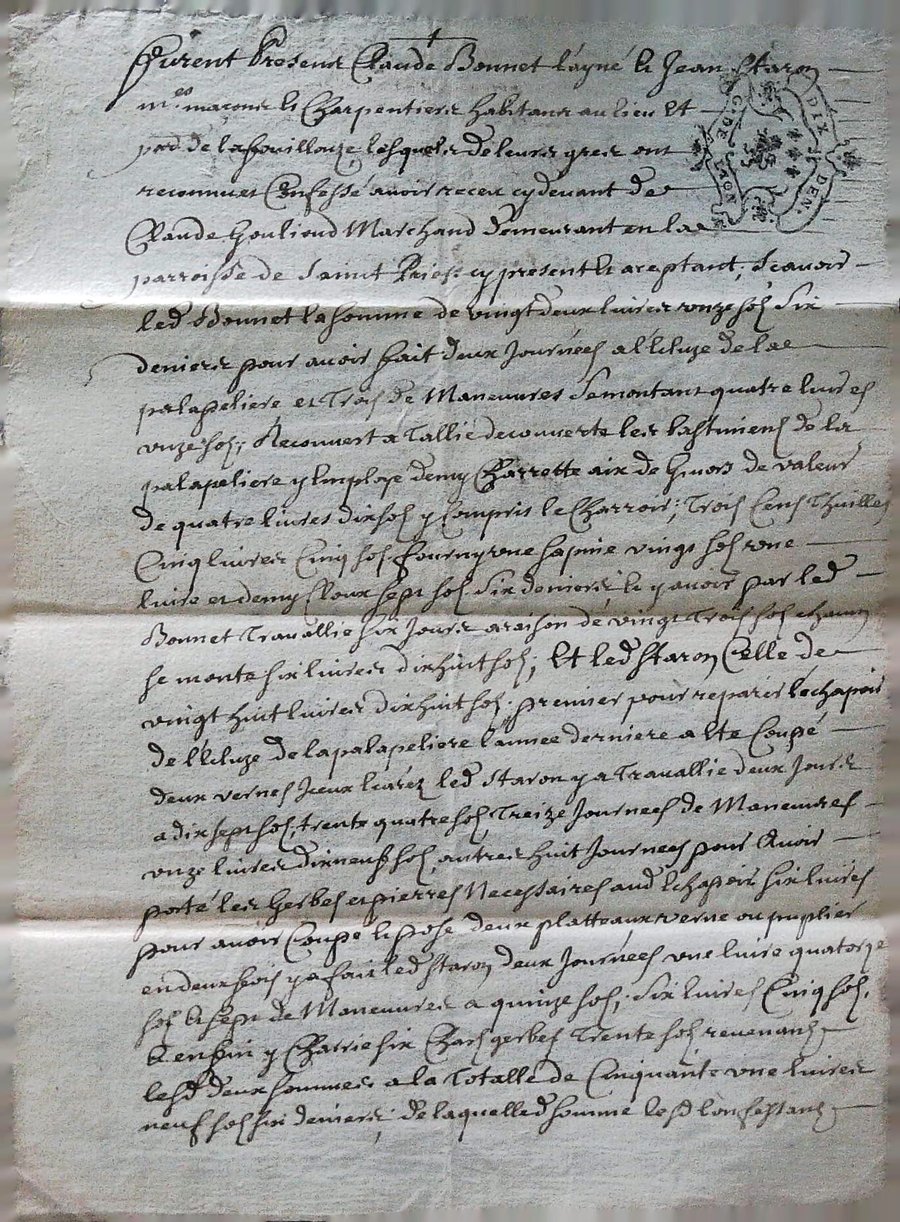 Furent Presens Claude Bonnet layné & Jean Staron
m.es maçons & Charpentiers habitans au lieu et
prd. de lafouillouze lesquels de leurs grés ont
reconnu et Confessé avoir receu cy devant de
Claude Gouliond Marchand demeurant en la
parroisse de Saint Priest cy present & aceptant, Scavoir
led Bonnet la somme de vingt deux livres unze sols Six
deniers pour avoir fait deux Journées a l'écluze de la
palapeliere et Trois de Maneuvres Se montant quatre livres
unze sols, Recouvert a Tallie decouverte les bastimens de la
palapeliere y Employé demy Charrette aix de de valeur
de quatre livres dix sols y Compris le Charroir; Trois Cens Thuilles
Cinq livres Cinq sols fourny une sapine vingt sols une
livre et demy Cloux sept sols Six deniers & y avoir par led
Bonnet Travallié six Jours a raison de vingt Trois sols chacun
se monte six livres dixhuit sols; Et led Staron Celle de
vingt huit livres dixhuit sols premier pour reparer lechapoir
de l'Ecluze de la palapeliere l'année derniere a Eté Coupé
deux vernes Iceux led Staron y a Travallié deux Jours
a dix sept sols, trente quatre sols, Treize Journées de Maneuvres
unze livres dixneuf sols, autres huit Journées pour Avoir
porté les Gerbes et pierres Necessaires aud Echapoir six livres
pour avoir Coupé & posé deux platteaux verne ou puplier
en deux fois y a fait led Staron deux Journées une livre quatorze
sols & sept de Maneuvres a quinze sols, Six livres Cinq sols,
& enfin y Charrié six Chars gerbes Trente sols revenans
lesd deux sommes a la Totalle de Cinquante une livres
neuf sols six deniers, de laquelle d somme lesd Confessans
G. DE LYON
DIX DEN.